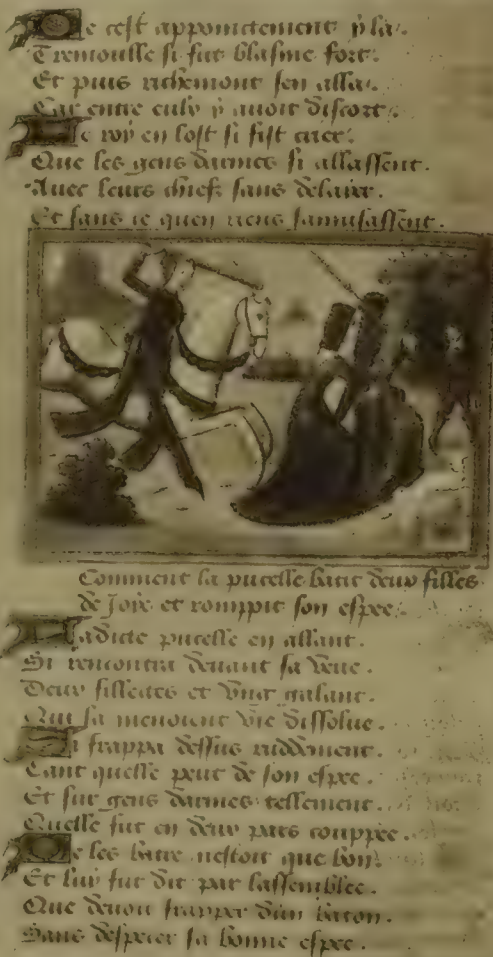 De cest appoinctement y la.
Tremoulle si fut blasme fort.
Et puis richemont sen alla.
Car entre eulx y auoit discort.
Le roy en lost si fist crier.
Que les gens darmes si allassent.
Auec leurs chiefz sans delaier.
Et sans ce quen riens samusassent.
Comment la pucelle batit deux filles
de Joye et romppit son espee.
Ladicte pucelle en allant.
Si rencontra deuant sa veue.
Deux fillectes et vng galant.
Qui la menoient vie dissolue.
Si frappa dessus ruddement.
Tant quelle peut de son espee.
Et sur gens darmes tellement.
Quelle fut en deux pars couppee.
De les batre nestoit que bon.
Et luy fut dit par lassemblee.
Que deuoit frapper dun baton.
Sans despecer sa bonne espee.